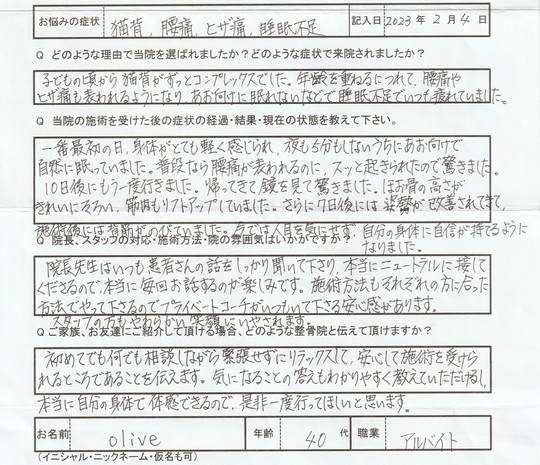 お悩みの症状 猫背、腰痛、ヒザ痛、睡眠不足 記入日 2023 年 2 月 4 日
Q どのような理由で当院を選ばれましたか？どのような症状で来院されましたか？
子どもの頃から猫背がずっとコンプレックスでした。年齢を重ねるにつれて、腰痛や
ヒザ痛も表われるようになり、あお向けに眠れないなどで睡眠不足でいつも疲れていました。
Q 当院の施術を受けた後の症状の経過・結果・現在の状態を教えて下さい。
一番最初の日、身体がとても軽く感じられ、夜も5分もしないうちにあお向けで
自然に眠っていました。普段なら腰痛が表われるのに、スッと起きられたので驚きました。
10日後にもう一度行きました。帰ってきて鏡を見て驚きました。ほお骨の高さが
きれいにそろい、筋肉もリフトアップしていました。さらに7日後には姿勢が改善されてきて、
施術後には背筋がのびていました。今では人目を気にせず、自分の身体に自信が持てるように
なりました。
Q 院長、スタッフの対応・施術方法・院の雰囲気はいかがですか？
院長先生はいつも患者さんの話をしっかり聞いて下さり、本当にニュートラルに接して
くださるので、本当に毎回お話するのが楽しみです。施術方法もそれぞれの方に合った
方法でやって下さるのでプライベートコーチがついもいて下さる安心感があります。
スタッフの方もやわらかい笑顔にいやされます。
Q ご家族、お友達にご紹介して頂ける場合、どのような整骨院と伝えて頂けますか？
初めてでも何でも相談しながら緊張せずにリラックスして、安心して施術を受けら
れるところであることを伝えます。気になることの答えもわかりやすく教えていただけるし、
本当に自分の身体で体感できるので、是非一度行ってほしいと思います。
お名前 olive 年齢 40 代 職業 アルバイト
(イニシャル・ニックネーム・仮名も可)